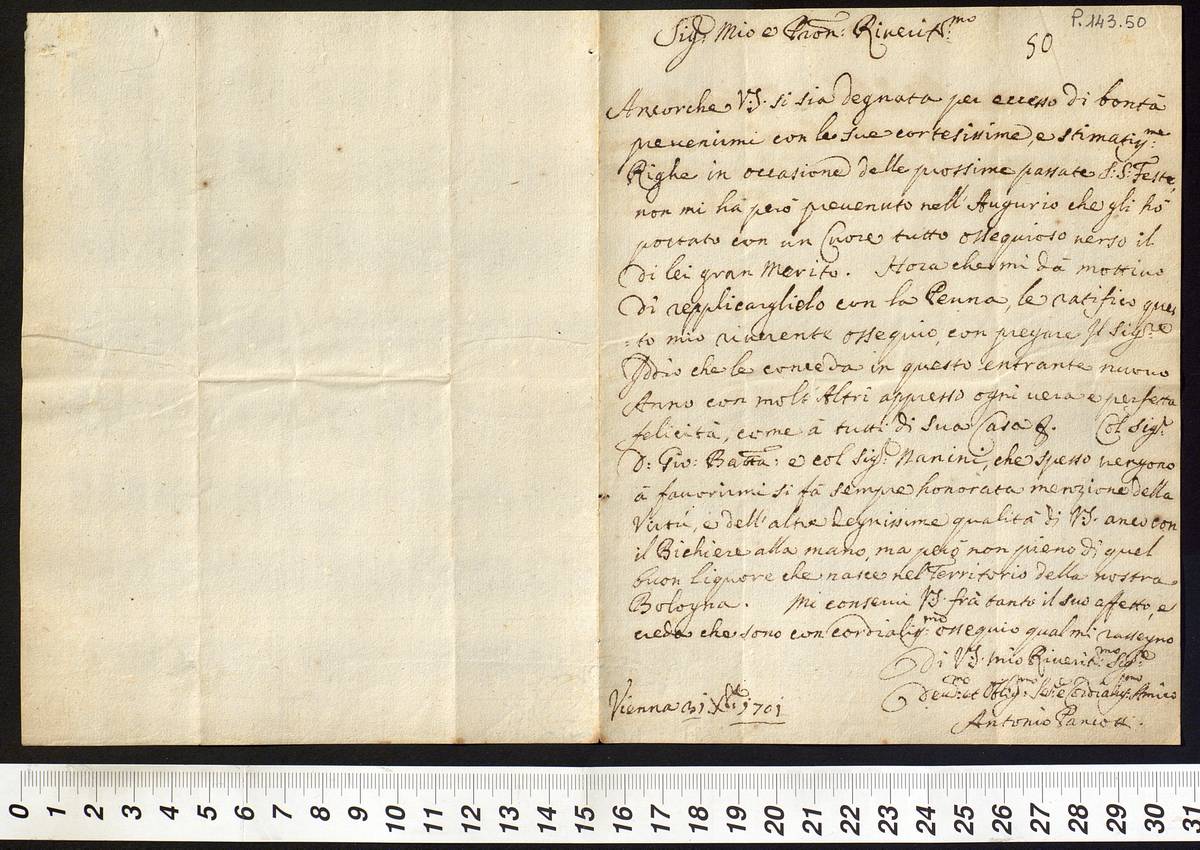 P.143.50
50
Sig.r Mio e Pron: Riverit.mo
Ancorche V.S. si sia degnata per eccesso di bontà
prevenirmi con le sue cortesissime, e stimatiss:me
Righe in occasione delle prossime passate S: S: Feste,
non mi hà però prevenuto nell'Augurio che gli hò
portato con un Cuore tutto ossequioso verso il
di lei gran Merito. Hora che mi dà mottivo
di repplicarglielo con la Penna, le ratifico ques
=to mio riverente ossequio, con pregare Il Sig:re
Iddio che le conceda in questo entrante nuovo
Anno con molt'Altri appresso ogni vera e perfetta
felicità, come à tutti di sua Casa &. Col Sig.r
D: Gio: Batta: e col Sig.r Nanini, che spesso vengono
à favorirmi si fà sempre honorata menzione della
Virtù, e dell'altre degnissime qualità di V.S. anco con
il Bichiere alla mano, ma però non pieno di quel
buon liquore che nasce nel Territorio della nostra
Bologna. Mi conservi V.S. frà tanto il suo affetto, e
creda che sono con cordialiss:mo ossequio qual mi rassegno
Di V.S. mio Riverit:mo Sig:re
Dev:mo et Oblig:mo Se:e Cordialiss:mo Amico
Vienna 31 Xbre 1701
Antonio Pancotti.
0 1 2 3 4 5 6 7 8 9 10 11 12 13 14 15 16 17 18 19 20 21 22 23 24 25 26 27 28 29 30 31